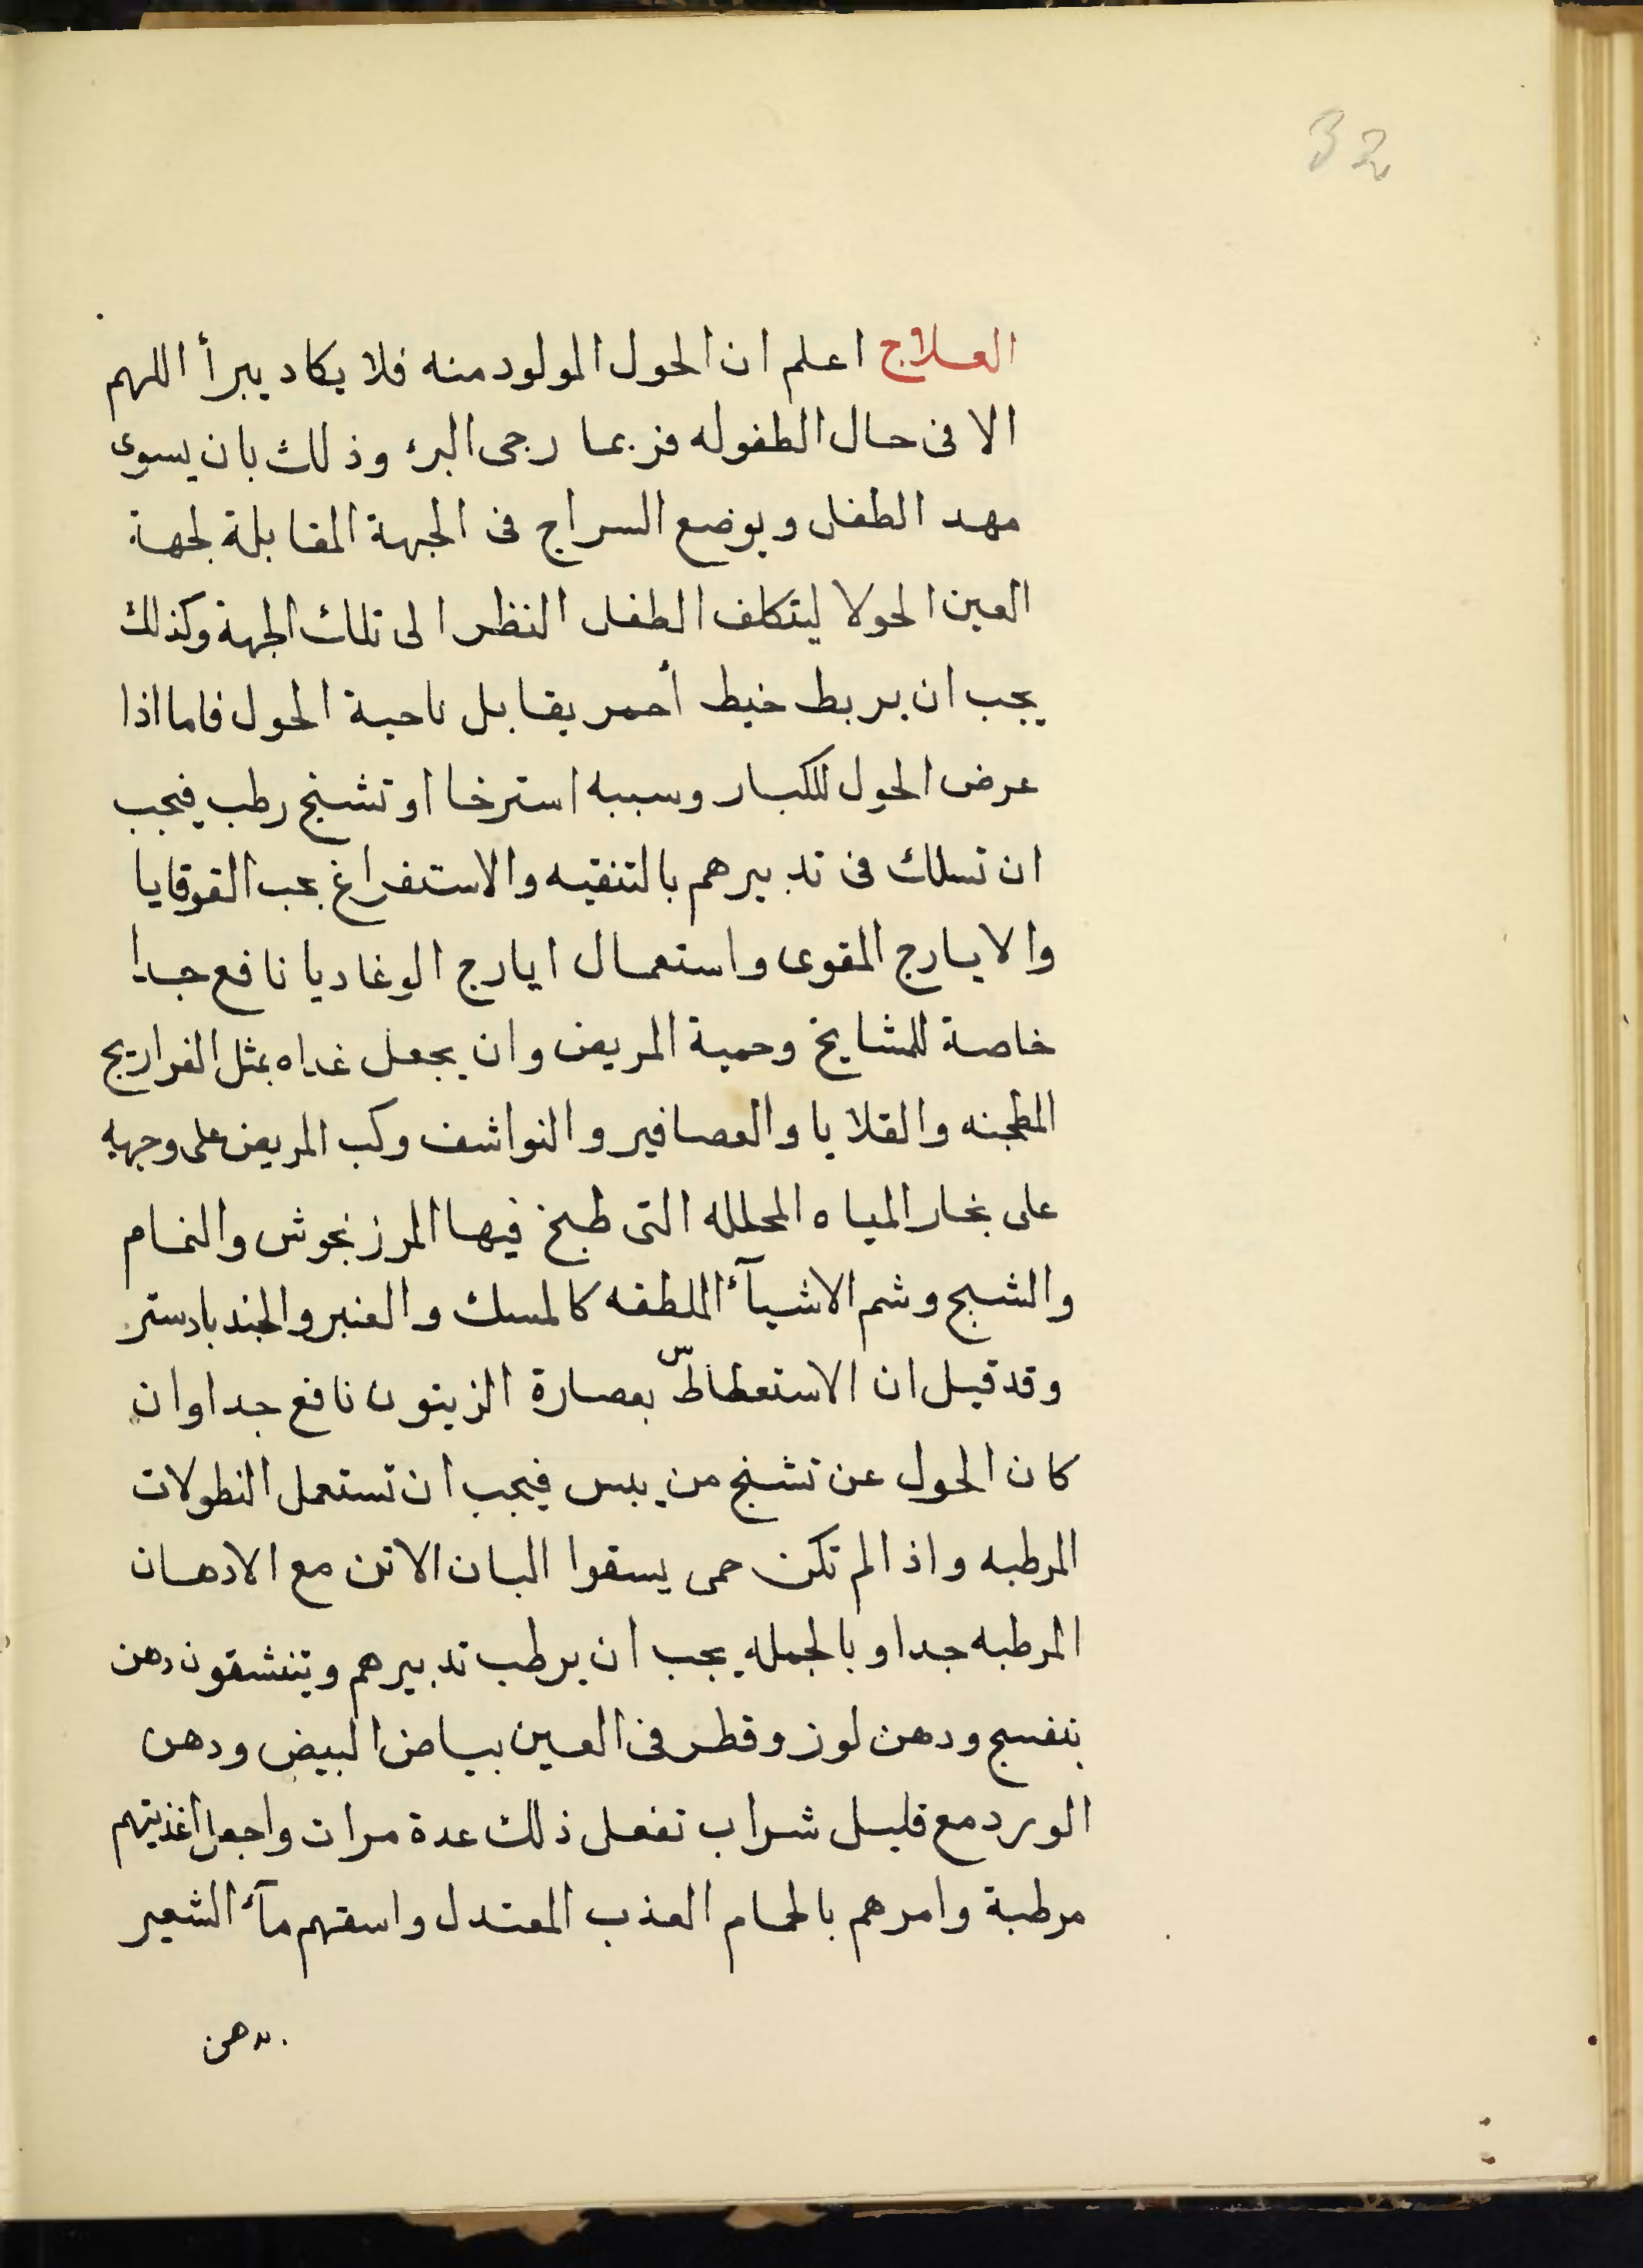 32
العلاج اعلم ان الحول المولود منه فلا يكاد يبرأ اللهم
الا فى حال الطفوله فربما رجى البرء وذلك بان يسوى
مهد الطفل ويوضع السراج فى الجهة المقابلة لجهة
العين الحولا ليتكلف الطفل النظر الى تلك الجهة وكذلك
يجب ان يربط خيط أحمر يقابل ناحية الحول فاما اذا
عرض الحول للكبار وسببه استرخا او تشنج رطب فيجب
ان تسلك فى تدبيرهم بالتنقيه والاستفراغ بحب القوقايا
والايارج المقوى واستعمال ايارج الوغاديا نافع جدا
خاصة للمشايخ وحمية المريض وان يجعل غداه بمثل الفراريج
المطجنه والقلايا والعصافير والنواشف وكب المريض على وجهه
على بخار المياه المحلله التى طبخ فيها المرزنجوش والنمام
والشيح وشم الاشيآء الملطفه كالمسك والعنبر والجندبادستر
وقد قيل ان الاستعطاط س بعصارة الزيتون نافع جدا وان
كان الحول عن تشنج من يبس فيجب ان تستعمل النطولات
المرطبه واذا لم تكن حمى يسقوا البان الاتن مع الادهان
المرطبه جدا وبالجمله يجب ان يرطب تدبيرهم ويتنشقون دهن
بنفسج ودهن لوز وقطر فى العين بياض البيض ودهن
الورد مع قليل شراب تفعل ذلك عدة مرات واجعل اغذيتهم
مرطبة وامرهم بالحمام العذب المعتدل واسقهم مآء الشعير
بدهن